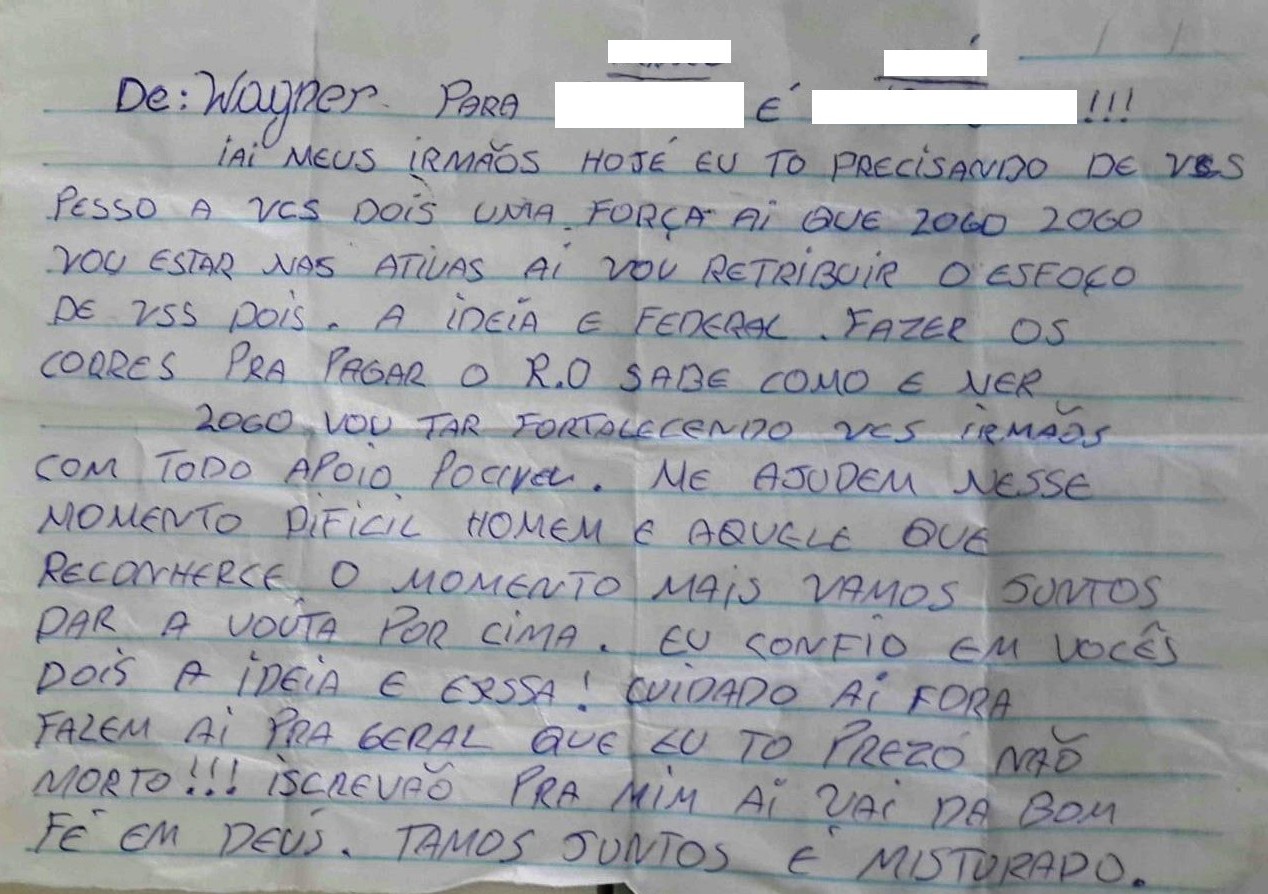 De: Wagner PARA É !!!
IAI MEUS IRMÃOS HOJÉ EU TO PRECISANDO DE VCS
PESSO A VCS DOIS UMA FORÇA AI QUE 2060 2060
VOU ESTAR NAS ATIVAS AI VOU RETRIBUIR O ESFOÇO
DE VSS DOIS. A IDEIA E FEDERAL. FAZER OS
CORRES PRA PAGAR O R.O SABE COMO E NER
2060 VOU TAR FORTALECENDO VCS IRMÃOS
COM TODO APOIO POCIVEL. ME AJUDEM NESSE
MOMENTO DIFICIL HOMEM E AQUELE QUE
RECONHERCE O MOMENTO MAIS VAMOS JUNTOS
DAR A VOUTA POR CIMA. EU CONFIO EM VOCÊS
DOIS A IDEIA E ERSSA! CUIDADO AI FORA
FAZEM AI PRA GERAL QUE EU TO PREZO NÃO
MORTO!!! ISCREVÃO PRA MIM AI VAI DA BOM
FÉ EM DEUS. TAMOS JUNTOS E MISTURADO.